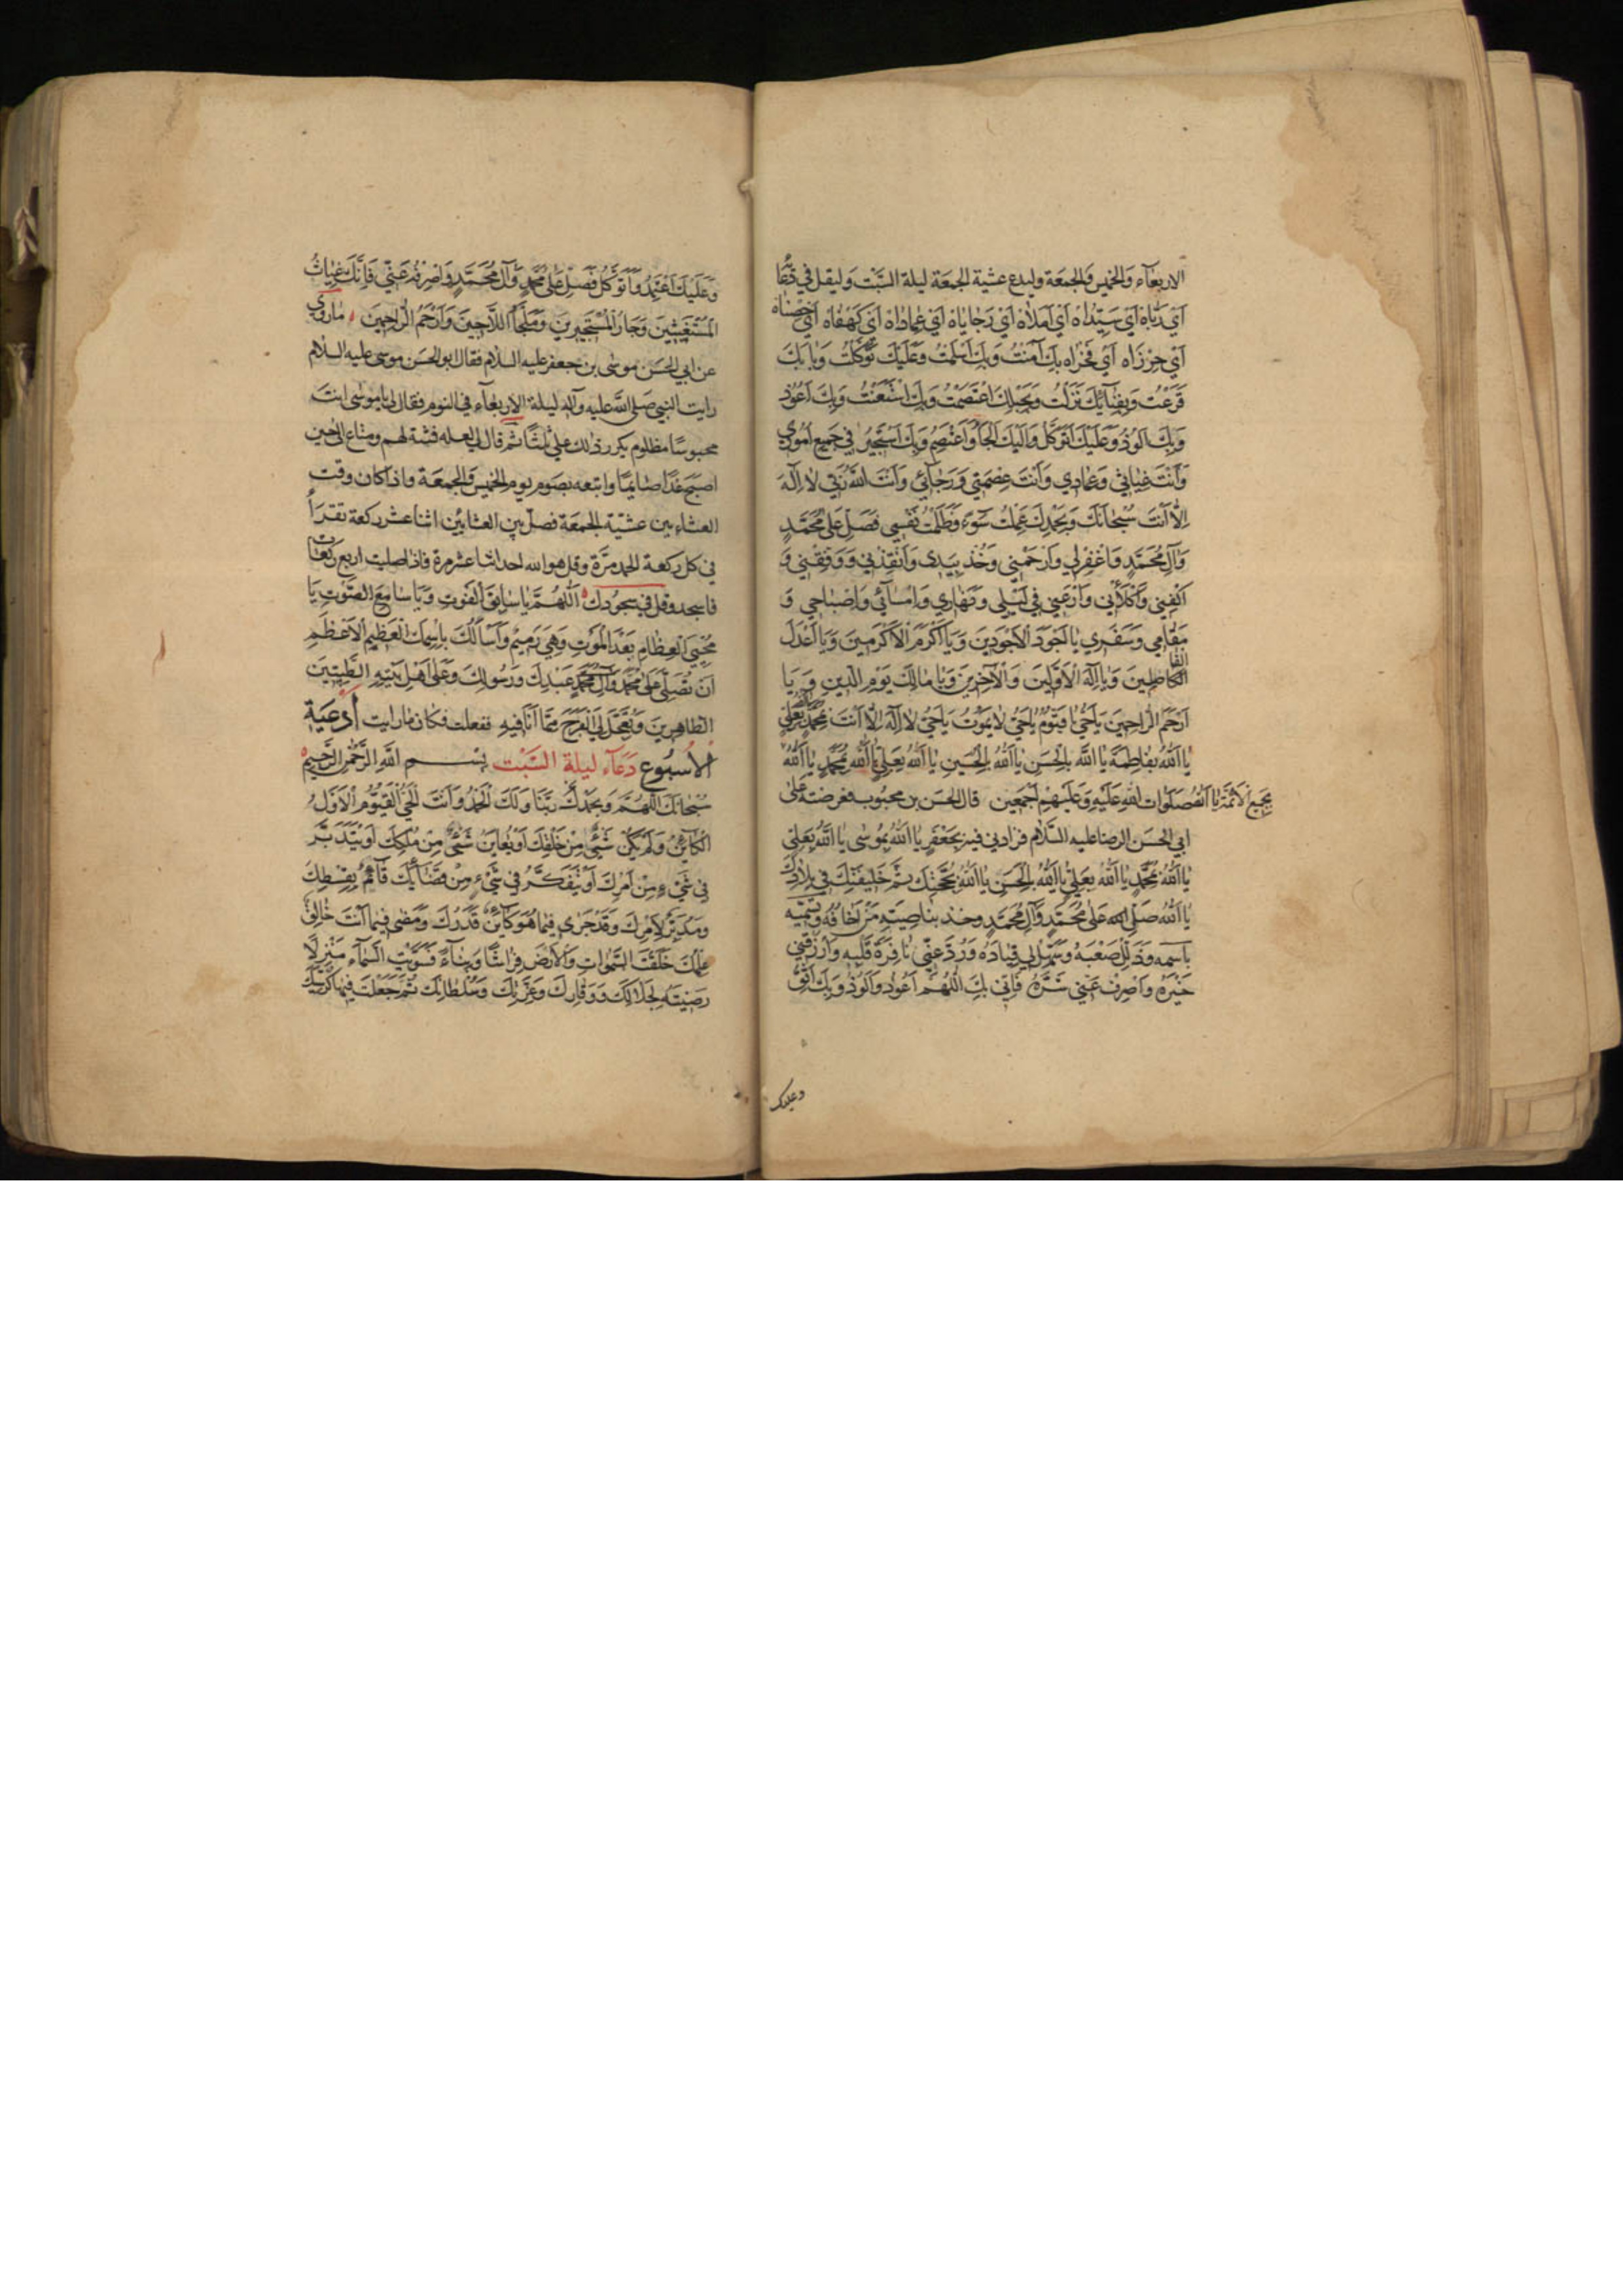 الاربعآء والخميس والجمعة وليدع عشية الجمعة ليلة السّبت وليقل في دُعَا
أَيْ رَبّاهْ أَيْ سَيِّداهْ أَيْ أَمَلاهْ أَيْ رَجاياهْ أَيْ عِماداهْ أَيْ كَهْفاهْ أَيْ حِصْناهْ
أَيْ حِرْزاه أَيْ فَخْراه بِكَ آمَنْتُ وَلَكَ أَسْلَمْتُ وَعَلَيْكَ تَوَكَّلْتُ وَبابَكَ
قَرَعْتُ وَبِفِنآئِكَ نَزَلْتُ وَبِحَبْلِكَ اعْتَصَمْتُ وَبِكَ اسْتَعَنْتُ وَبِكَ أَعُوذُ
وَبِكَ أَلُوذُ وَعَلَيْكَ أَتَوَكَّلُ وَإِلَيْكَ أَلْجَأُ وَأَعْتَصِمُ وَبِكَ أَسْتَجِيرُ فِي جَمِيعِ أُمُورِي
وَأَنْتَ غِياثي وَعِمادِي وَأَنْتَ عِصْمَتِي وَرَجآئِي وَأَنْتَ اللهُ رَبّي لا إِلٰهَ
إِلّا أَنْتَ سُبْحانَكَ وَبِحَمْدِكَ عَمِلْتُ سُوءً وَظَلَمْتُ نَفْسِي فَصَلِّ عَلى مُحَمَّدٍ
وَآلِ مُحَمَّدٍ وَاغْفِرْ لِي وَارْحَمْنِي وَخُذْ بِيَدِى وَأَنْقِذْنِي وَوَفِّقْنِي وَ
اكْفِنِي وَاكْلَأْنِي وَارْعَنِي فِي لَيْلِي وَنَهارِي وَإِمْسآئِي وَإِصْباحِي وَ
مَقامِي وَسَفَرِي يا أَجْوَدَ الْأَجْوَدِينَ وَيا أَكْرَمَ الْأَكْرَمِينَ وَيا أَعْدَلَ
الْفاصِلِينَ وَيا إِلٰهَ الْأَوَّلِينَ وَالْآخِرِينَ وَيا مالِكَ يَوْمِ الدِّينِ وَ يا
أَرْحَمَ الرّاحِمِينَ يا حَيُّ يا قَيُّومُ يا حَيُّ لا يَمُوتُ يا حَيُّ لا إِلٰهَ إِلّا أَنْتَ بِمُحَمَّدٍ بِعَلِيٍّ
يا اَللهُ بِفاطِمَةَ يا اللهُ بِالْحَسَنِ يا اللهُ بِالْحُسَيْنِ يا اَللهُ بِعَلِيٍّ يا اللهُ بِمُحَمَّدٍ يا اَللهُ
قال الحسن بن محبوب فعرضته على
بِجَمِيعِ الْأَئِمَّةِ يا اَللهُ صَلَواتُ اللهِ عَلَيْهِ وَعَلَيْهِمْ أَجْمَعِين
ابي الحسن الرضا عليه السّلام فزادنى فيه بِجَعْفَرٍ يا اَللهُ بِمُوسى يا اَللهُ بِعَلِيٍّ
يا اَللهُ بِمُحَمَّدٍ يا اَللهُ بِعَلِيٍّ يا اَللهُ بِالْحَسَنِ يا اَللهُ بِحُجَّتِكَ ثمّ خَلِيفَتِكَ فِي بِلادِكَ
يا اَللهُ صَلِّ عَلى مُحَمَّدٍ وَآلِ مُحَمَّدٍ وخذ بناصِيَةِ مَنْ أَخافُهُ وتسمّيه
باسمه وَذَلِّلْ صَعْبَهُ وَسَهِّلْ لِي قِيادَهُ وَرُدَّ عَنِّي نافِرَةَ قَلْبِهِ وَارْزُقْنِي
خَيْرَهُ وَاصْرِفْ عَنِّي شَرَّهُ فَإِنِّي بِكَ اللّهُمَّ أَعُوذُ وَأَلُوذُ وَبِكَ أَثِقُ
وعليك
وَعَلَيْكَ أَعْتَمِدُ وَأَتَوَكَّلُ فَصَلِّ عَلى مُحَمَّدٍ وَآلِ مُحَمَّدٍ وَاصْرِفْهُ عَنِّي فَإِنَّكَ غِياثُ
الْمُسْتَغِيثِينَ وَجارُ الْمُسْتَجِيرِينَ وَمَلْجَأُ اللّاجِينَ وَأَرْحَمُ الرّاحِمِينَ ماروى
عن ابي الحسن موسى بن جعفر عليه السلام فقال ابو الحسن موسى عليه السلام
رايت النبي صلى الله عليه وآله ليلة الاربعآء في النوم فقال لي يا موسى انت
محبوسًا مظلوم يكرر ذلك علىّ ثلثًا ثم قال لي لعله فتنة لهم ومتاع الى حين
اصبح غدًا صايمًا واتبعه بصوم يوم الخميس والجمعة واذا كان وقت
العشاء بين عشيّة الجمعة فصلّ بين العشايين اثنا عشر ركعة تقرأ
في كل ركعة الحمد مرّة وقل هو الله احد اثنا عشر مرة فاذا صليت اربع ركعات
فاسجد وقل في سجودك اَللّهُمَّ يا سابِقَ الْفَوْتِ وَيا سامِعَ الصَّوْتِ يا
مُحْيِيَ الْعِظامِ بَعْدَ الْمَوْتِ وَهِيَ رَمِيمٌ وَأَسْأَلُكَ بِاسْمِكَ الْعَظِيمِ الْأَعْظَمِ
أَنْ تُصَلِّيَ عَلى مُحَمَّدٍ وَآلِ مُحَمَّدٍ عَبْدِكَ وَرَسُولِكَ وَعَلى أَهْلِ بَيْتِهِ الطَّيِّبِينَ
الطّاهِرِينَ وَتُعَجِّلَ لِيَ الْفَرَجَ مِمّا أَنَا فِيهِ ففعلت فكان ما رايت أدعية
الأسبوع دعآء ليلة السّبت بسم الله الرّحمن الرّحيم
سُبْحانَكَ اللّهُمَّ وَبِحَمْدِكَ رَبَّنا وَلَكَ الْحَمْدُ وَأَنْتَ الْحَيُّ الْقَيُّومُ الْأَوَّلُ
الْكآئِنُ وَلَمْ يَكُنْ شَيْءٌ مِنْ خَلْقِكَ أَوْ يُعايَنُ شَيْءٌ مِنْ مُلْكِكَ أَوْ يُتَدَبَّرَ
فِي شَيْءٍ مِنْ أَمْرِكَ أَوْ يُتَفَكَّرَ فِي شَيْءٍ مِنْ قَضآئِكَ قآئِمٌ بِقِسْطِكَ
وَمُدَبِّرٌ لِأَمْرِكَ وَقَدْ جَرى فِيما هُوَ كآئِنٌ قَدَرُكَ وَمَضى فِيما أَنْتَ خالِقٌ
عِلْمُكَ خَلَقْتَ السَّمواتِ وَالْأَرْضَ فِراشًا وَبِنآءً فَسَوَّيْتَ السَّمآءَ مَنْزِلًا
رَضِيتَهُ لِجَلالِكَ وَوَقارِكَ وَعِزَّتِكَ وَسُلْطانِكَ ثُمَّ جَعَلْتَ فِيها كُرْسِيَّكَ